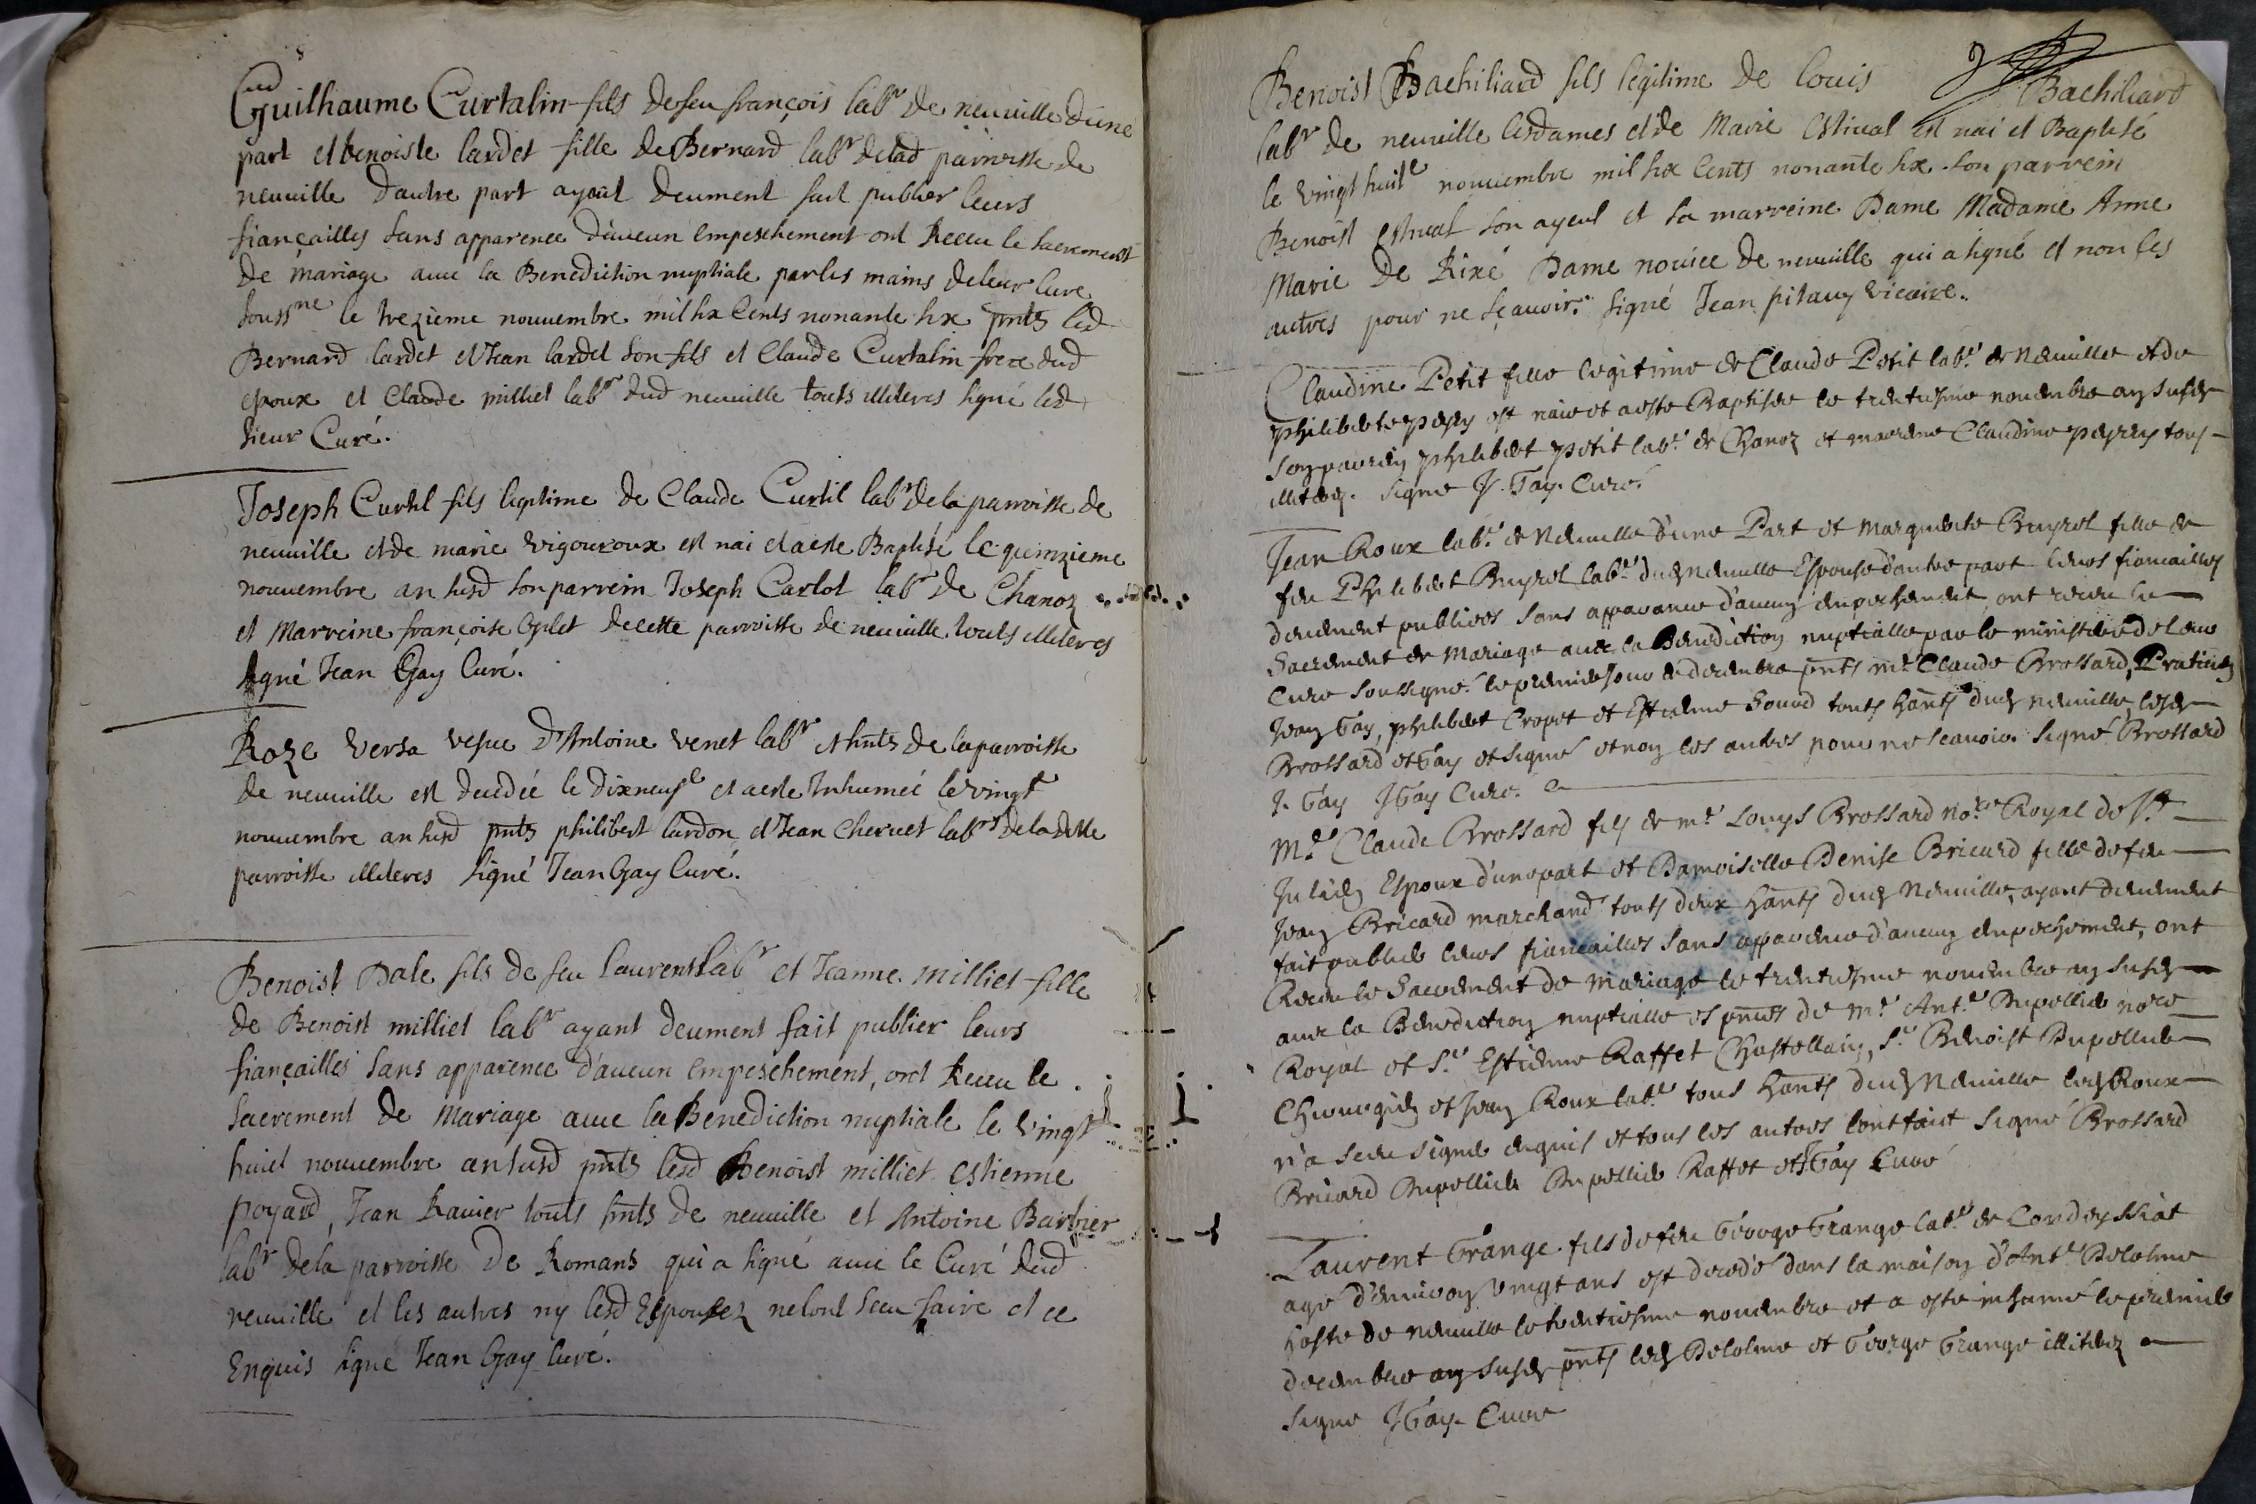 Guilhaume Curtalin fils de feu françois lab^r de neuville d'une
part et benoiste lardet fille de Bernard lab^r delad parroisse de
neuville d'autre part ayant deument fait publier leurs
fiançailles sans apparence d'aucun empeschement ont Receu le sacrement
de mariage avec la Benediction nuptiale par les mains de leur Cure
souss^ne le trezieme nouuembre mil six Cents nonante six pnts led
Bernard lardet et Jean lardet son fils et Claude Curtalin frere dud
epoux et Claude milliet lab^r dud neuuille touts illiteres signé led
sieur Curé.
Joseph Curtil fils legitime de Claude Curtil lab^r de la parroisse de
neuuille et de marie Vigouroux est nai et a este Baptisé le quinzieme
nouuembre an susd son parrein Joseph Carlot lab^r de Chanoz
et Marreine françoise Oplet de cette parroisse de neuuille touts illiteres
signé Jean Gay Curé.
Roze Versa vefue d'Antoine Venet lab^r et hnts de la parroisse
de neuuille est decedée le dixneuf^e et a este Inhumée le vingt
nouuembre an susd pnts philibert lardon et Jean Cheruet lab^rs de la dette
parroisse illiteres signé Jean Gay Curé.
Benoist Dale fils de feu Laurent lab^r et Jeanne Milliet fille
de Benoist milliet lab^r ayant deument fait publier leurs
fiançailles sans apparence d'aucun empeschement, ont Receu le
sacrement de Mariage auec la Benediction nuptiale le vingt
huict nouuembre an susd pnts lesd Benoist milliet estienne
poyard, Jean Rauier touts hnts de neuuille et Antoine Barbier
lab^r de la parroisse de Romans qui a signé auec le Curé dud
neuuille et les autres ny lesd Espousez ne l'ont sceu faire et ce
Enquis signé Jean Gay Curé.
Benoist Bachiliard fils legitime de Louis Bachiliard
lab^r de neuuille lesdames et de Marie Estiual est nai et Baptisé
le vingt huit^e nouuembre mil six Cents nonante six son parrein
Benoist estiual son ayeul et sa marreine Dame Madame Anne
Marie de Rixé Dame nouice de neuuille qui a signé et non les
autres pour ne sçauoir. signé Jean pitauy vicaire.
Claudine Petit fille legitime de Claude Petit lab^r de Neuuille et de
philiberte perry est naie et a este Baptisee le trentiesme nouembre an susd
son parrein philibert petit lab^r de Chanoz et marreine Claudine peyrry tous
illiterez. signe J. Gay. Curé.
Jean Roux lab^r de Neuuille d'une Part et Marguerite Bruyrol fille de
feu Philibert Bruyrol lab^r dud Neuuille Espouse d'autre part leurs fiancailles
deuement publiees sans apparance d'aucun empechement ont receu le
Sacrement de Mariage auec la Benediction nuptialle par le ministere de leur
Cure soussigne. le premier jour de decembre pnts m^e Claude Brossard, Praticien
Jean Gay, philibert Cropet et Estienne Souurd touts hants dud neuuille, lesd
Brossard et Gay et signé et non les autres pour ne scauoir. signé Brossard
J. Gay J Gay Cure.
M^e Claude Brossard fils de m^e Louys Brossard no^re Royal de S^t
Julien Espoux d'une part et Damoiselle Denise Bricard fille de feu
Jean Bricard marchand touts deux hants dud Neuuille, ayant deuement
fait publier leurs fiancailles sans apparence d'aucun empechement, ont
Receu le Sacrement de Mariage le trentiesme nouembre an susd
auec la Benediction nuptialle es pnces de m^e Ant^e Dupellier no^re
Royal et S^r Estienne Raffet Chastellain, S^r Benoist Dupellier
Chirurgien et Jean Roux lab^r tous hants dud Neuuille led Roux
n'a sceu signer enquis et tous les autres l'ont faict signé Brossard
Bricard Dupellier Dupellier Raffet et J Gay Curé
Laurent Grange fils de feu George Grange lab^r de Condeyssiat
agé d'enuiron vingt ans est decedé dans la maison d'Ant^e Delolme
hoste de Neuuille le trentiesme nouembre et a esté inhumé le premier
decembre an susd pnts led Delolme et George Grange illiterez
signe J Gay. Cure